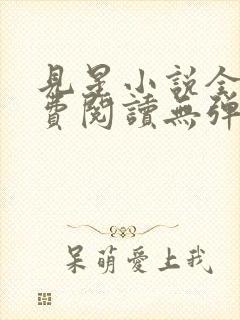 見星小說全
費閱讀無彈
呆萌愛上我